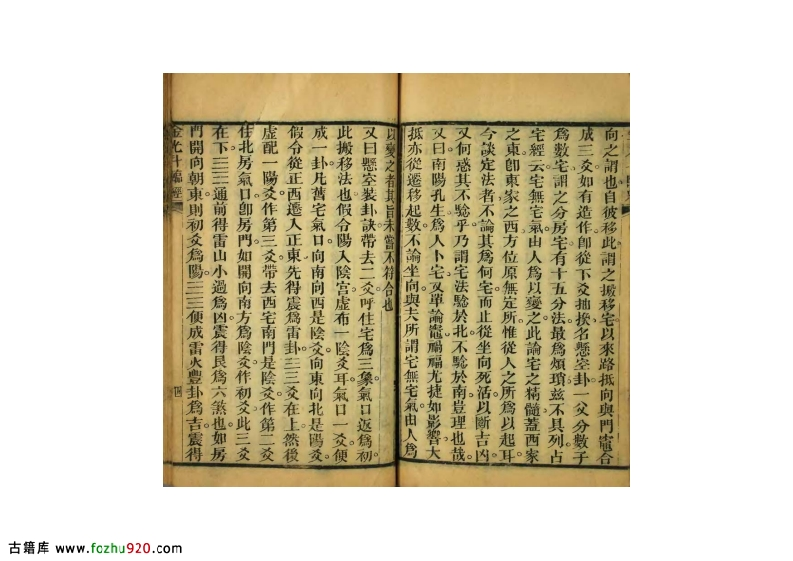 向之謂也自彼移此謂之搬移宅以來路抵向與門竈合
成三爻如有造作卽從下爻拗挨名懸空卦一父分數子
爲數宅謂之分房宅有十五分法最爲煩瑣茲不具列占
宅經云宅無宅氣由人爲以變之此論宅之精髓蓋西家
之東卽東家之西方位原無定所惟從人之所爲以起耳
今談定法者不論其爲何宅而止從坐向死活以斷吉凶
又何惑其不驗乎乃謂宅法驗於北不驗於南豈理也哉
又曰南陽孔生爲人卜宅又單論竈禍福尤捷如影響大
抵亦從遷移起數不論坐向與夫所謂宅無宅氣由人爲
以變之者其旨未嘗不符合也
又曰懸空裝卦訣帶去二爻呼住宅爲三象氣口返爲初
此搬移法也假令陽入陰宮虛布一陰爻耳氣口一爻便
成一卦凡舊宅氣口向南向西是陰爻向東向北是陽爻
假令從正西遷入正東先得震爲雷卦三三爻在上然後
虛配一陽爻作第三爻帶去西宅南門是陰爻作第二爻
住北房氣口卽房門如開向南方爲陰爻作初爻此三爻
在下三三通前得雷山小過爲凶震得艮爲六煞也如房
門開向朝東則初爻爲陽三三便成雷火豐卦爲吉震得
金光斗臨經
古籍库 www.fozhu920.com